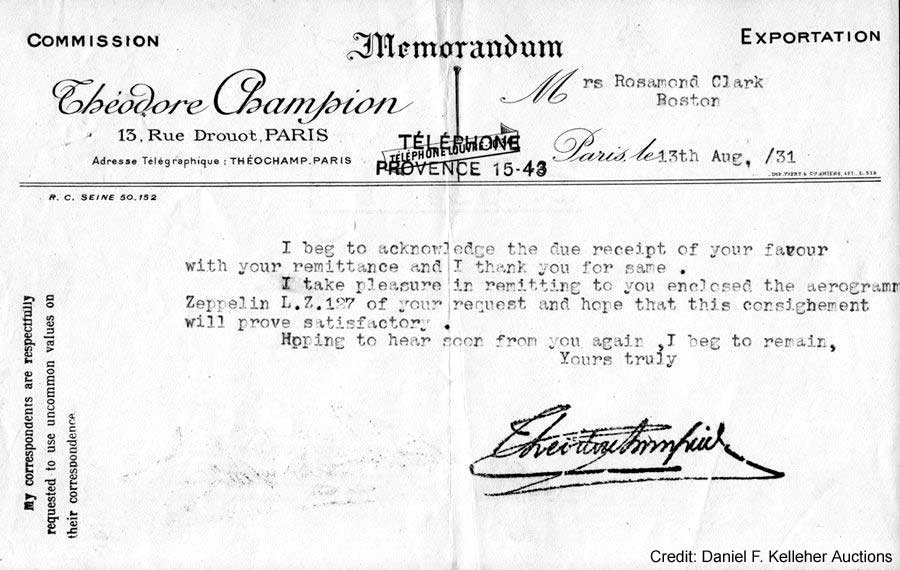 COMMISSION
Memorandum
EXPORTATION
Théodore Champion
13, Rue Drouot, PARIS
Adresse Télégraphique : THÉOCHAMP. PARIS
TÉLÉPHONE
TÉLÉPHONE LOUVRE
PROVENCE 15-43
Mrs Rosamond Clark
Boston
Paris, le 13th Aug, /31
R. C. SEINE 50.152
I beg to acknowledge the due receipt of your favour
with your remittance and I thank you for same .
I take pleasure in remitting to you enclosed the aerogramm
Zeppelin L.Z.127 of your request and hope that this consighement
will prove satisfactory .
Hoping to hear soon from you again ,I beg to remain,
Yours truly
Théodore Champion
My correspondents are respectfully
requested to use uncommon values on
their correspondence
Credit: Daniel F. Kelleher Auctions